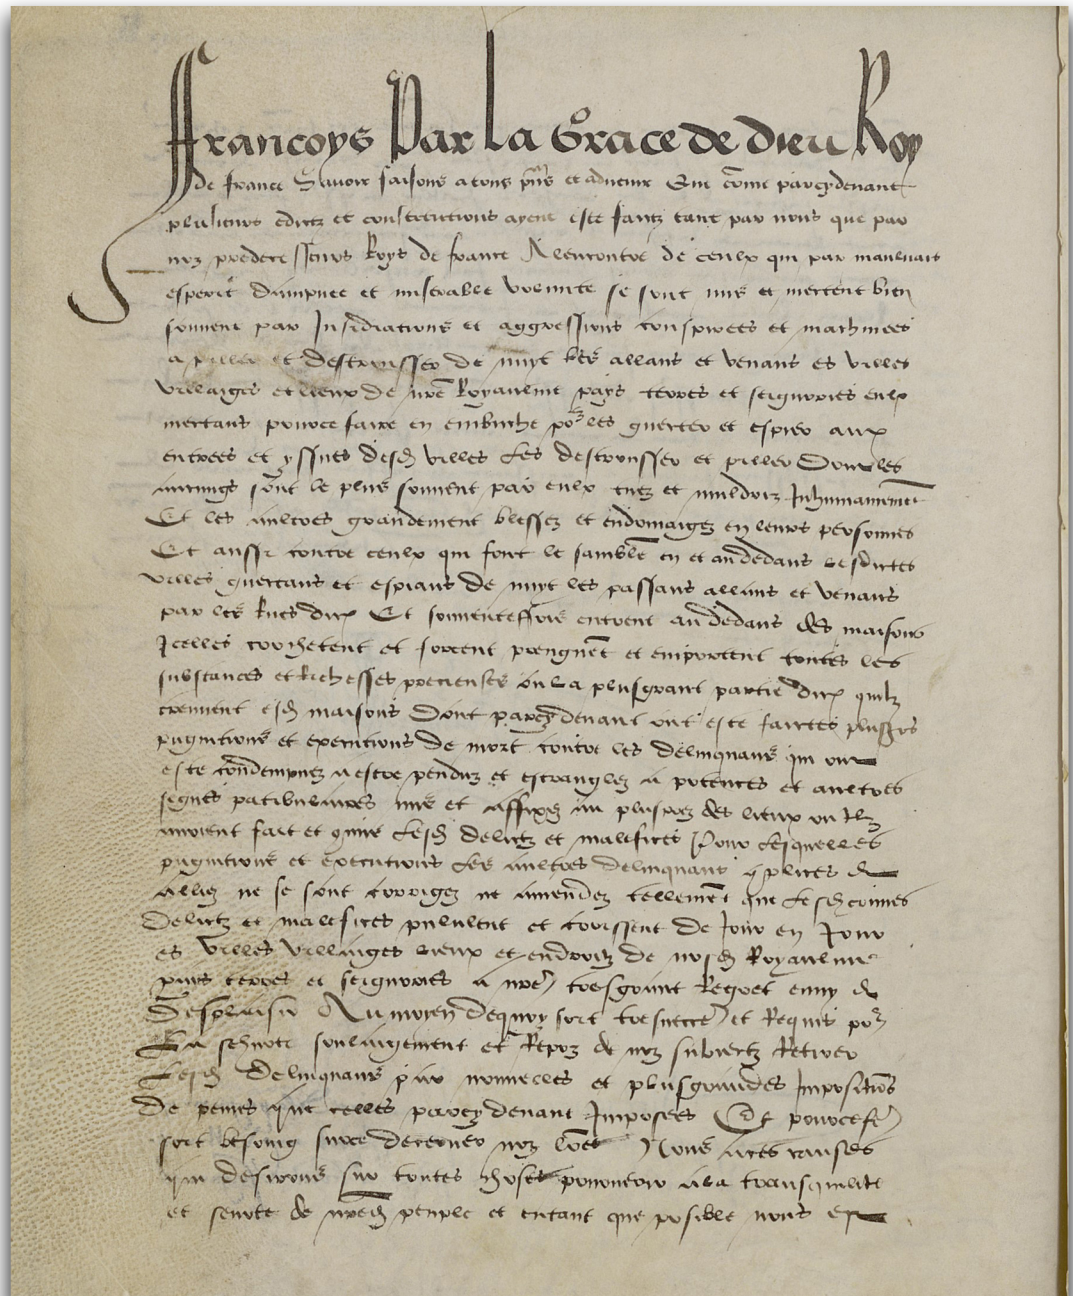 Francoys Par La Grace de dieu Roy
de france Savoir faisons a tous pñs et advenir Que cõme parcydevant
plusieurs edictz et constitutions ayent este faictz tant par nous que par
noz predecesseurs Roys de france A lencontre de ceulx qui par maulvais
esperit dampnee et miserable volunte se sont mis et mectent bien
souvent par Insidiations et aggressions conspirees et machinees
a piller et destrousser de nuyt les allans et venans es villes
villaiges et lieux de nr̃e Royaulme pays terres et seigneuries eulx
mectans pour ce faire en embusche po^r les guecter et espier aux
entrees et yssues desd villes Les destrousser et piller Dont les
aucuns sont le plus souvent par eulx tuez et meuldriz Inhumainement
Et les aultres grandement blessez et endomaigez en leurs personnes
Et aussi contre ceulx qui font le samblẽ en et au dedans lesdictes
villes guectans et espians de nuyt les passans allans et venans
par les Rues dicx Et souventesfois entrent au dedans des maisons
Icelles crochetent et forcent prengnẽt et emportent toutes les
substances et Richesses precieuses ou La plusgrant partie dicx quilz
treuvent esd maisons Dont parcydevant ont este faictes plus^rs
pugnitions et executions de mort contre les delinquans qui ont
este condempnez a estre penduz et estranglez a potences et aultres
signes patibulaires mis et affixez au plusprez des lieux ou Ilz
avoient fait et cõmis Lesd delictz et malefices Pour Lesquelles
pugnitions et executions Les aultres delinquans cõplices et
alliez ne se sont corrigez ne amendez tellement que Lesd crimes
delictz et malefices pululent et croissent de Jour en Jour
es villes villaiges lieux et endroitz de nosd Royaulme
pais terres et seigneuries a nr̃e tresgrant Regret enuy et
desplaisir Au moyen dequoy soit tresnecc^e et Requis po^r
La seurte soulaigement et Repoz de noz subiectz Retirer
Lesd delinquans par nouvelles et plusgrandes Impositiõs
de peines que celles parcy devant Imposees Et pour ce fe^r
soit besoing sur ce decerner noz lr̃es Nous a ces causes
qui desirons sur toutes choses pourveoir a la transquilite
et seurte de nr̃ed peuple et entant que posible nous est